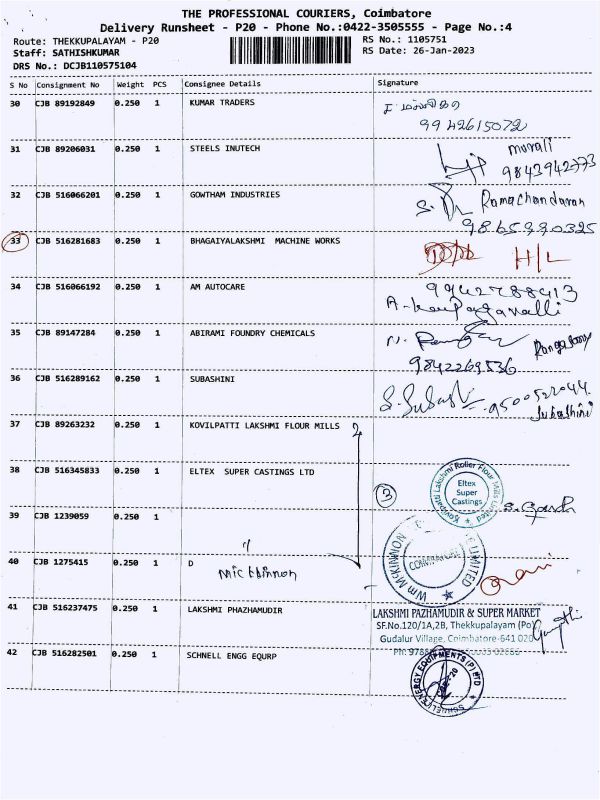 THE PROFESSIONAL COURIERS, Coimbatore
Delivery Runsheet - P20 - Phone No.:0422-3505555 - Page No.:4
Route: THEKKUPALAYAM - P20
RS No.: 1105751
Staff: SATHISHKUMAR
RS Date: 26-Jan-2023
DRS No.: DCJB110575104
S No Consignment No Weight PCS Consignee Details Signature
30 CJB 89192849 0.250 1 KUMAR TRADERS
9942615072
31 CJB 89206031 0.250 1 STEELS INUTECH murali
9843942773
32 CJB 516066201 0.250 1 GOWTHAM INDUSTRIES Ramachandaran
9865990325
33 CJB 516281683 0.250 1 BHAGAIYALAKSHMI MACHINE WORKS H/L
34 CJB 516066192 0.250 1 AM AUTOCARE 9942788413
35 CJB 89147284 0.250 1 ABIRAMI FOUNDRY CHEMICALS
9842269536
36 CJB 516289162 0.250 1 SUBASHINI S. Subash 9500522044
Subashini
37 CJB 89263232 0.250 1 KOVILPATTI LAKSHMI FLOUR MILLS
38 CJB 516345833 0.250 1 ELTEX SUPER CASTINGS LTD
3
Kovilpatti Lakshmi Roller Flour Mills Limited
Eltex
Super
Castings
39 CJB 1239059 0.250 1
40 CJB 1275415 0.250 1 D
COIMBATORE
41 CJB 516237475 0.250 1 LAKSHMI PHAZHAMUDIR
LAKSHMI PAZHAMUDIR & SUPER MARKET
SF.No.120/1A,2B, Thekkupalayam (Po)
Gudalur Village, Coimbatore-641 020
42 CJB 516282501 0.250 1 SCHNELL ENGG EQURP